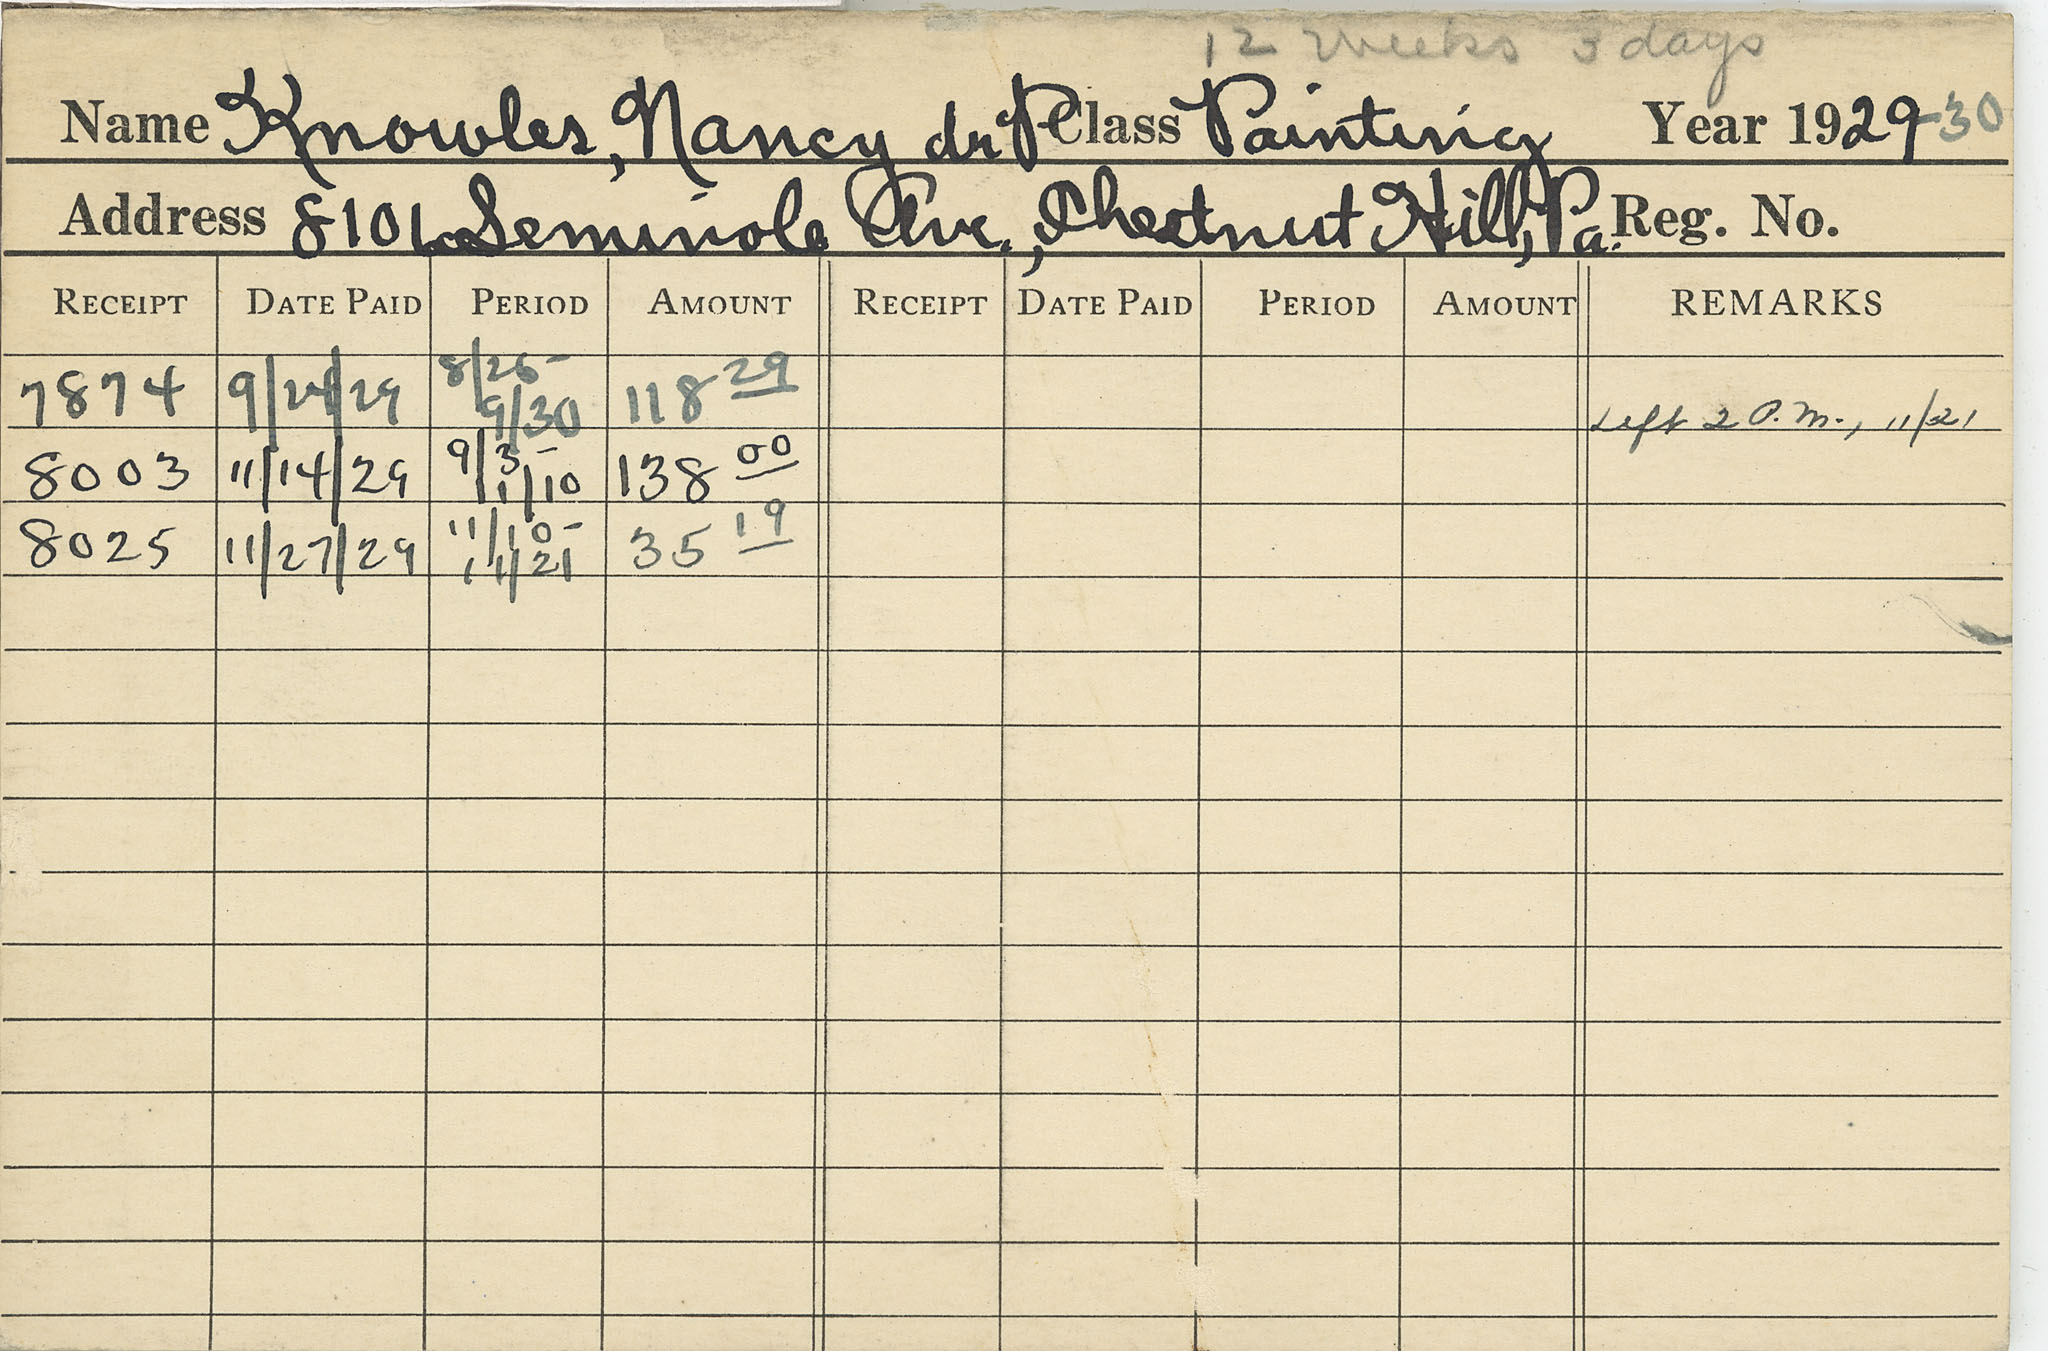 12 weeks 3 days
Name Knowles, Nancy du P. Class Painting Year 1929-30
Address 8106 Seminole Ave., Chestnut Hill, Pa. Reg. No.
RECEIPT DATE PAID PERIOD AMOUNT RECEIPT DATE PAID PERIOD AMOUNT REMARKS
7874 9/24/29 8/26- 9/30 118 29
Left 2 P.M., 11/21
8003 11/14/29 9/3- 1/10 138 00
8025 11/27/29 11/10- 11/21 35 19